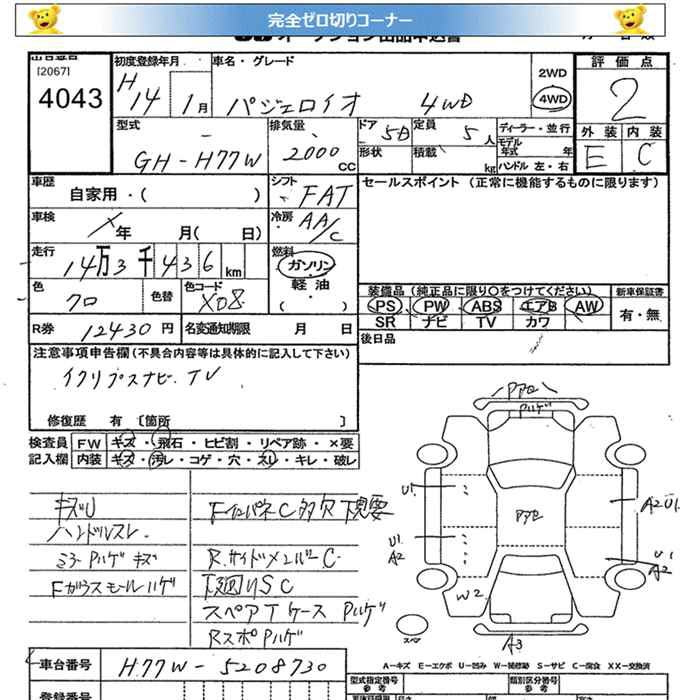 完全ゼロ切りコーナー
オークション出品申込書
出品番号
[2067]
4043
初度登録年月
H14 1月
車名・グレード
パジェロイオ 4WD
2WD
4WD
評価点
2
外装 内装
E C
型式
GH-H77W
排気量
2000 CC
ドア 5D
形状
定員 5人
積載 kg
ディーラー・並行
モデル年式 年
ハンドル 左・右
車歴
自家用・( )
シフト FAT
セールスポイント(正常に機能するものに限ります)
車検
年 月( 日)
冷房 AA/C
走行
14万3千436km
燃料
ガソリン
軽油
( )
色
クロ
色替
色コード
X08
装備品(純正品に限り○をつけてください)
PS PW ABS エアB AW
SR ナビ TV カワ
新車保証書
有・無
R券 12430円
名変通知期限 月 日
後日品
注意事項申告欄(不具合内容等は具体的に記入して下さい)
イクリプスナビ TV
修復歴 有 〔箇所 〕
検査員 FW キズ・飛石・ヒビ割・リペア跡・×要
記入欄 内装 キズ・汚レ・コゲ・穴・スレ・キレ・破レ
キズU
ハンドルスレ
ミラーPハゲ キズ
Fガラスモールハゲ
Fインパネ C 多欠 下見要
R.サイドメンバーC
下廻りSC
スペアTケース Pハゲ
RスポPハゲ
Pハゲ
U1
U1
A2
W2
A2 U1
U1
A2
A3
スペア
A-キズ E-エクボ U-凹み W-補修跡 S-サビ C-腐食 XX-交換済
車台番号 H77W-5208730
登録番号
型式指定番号
参考
類別区分番号
参考